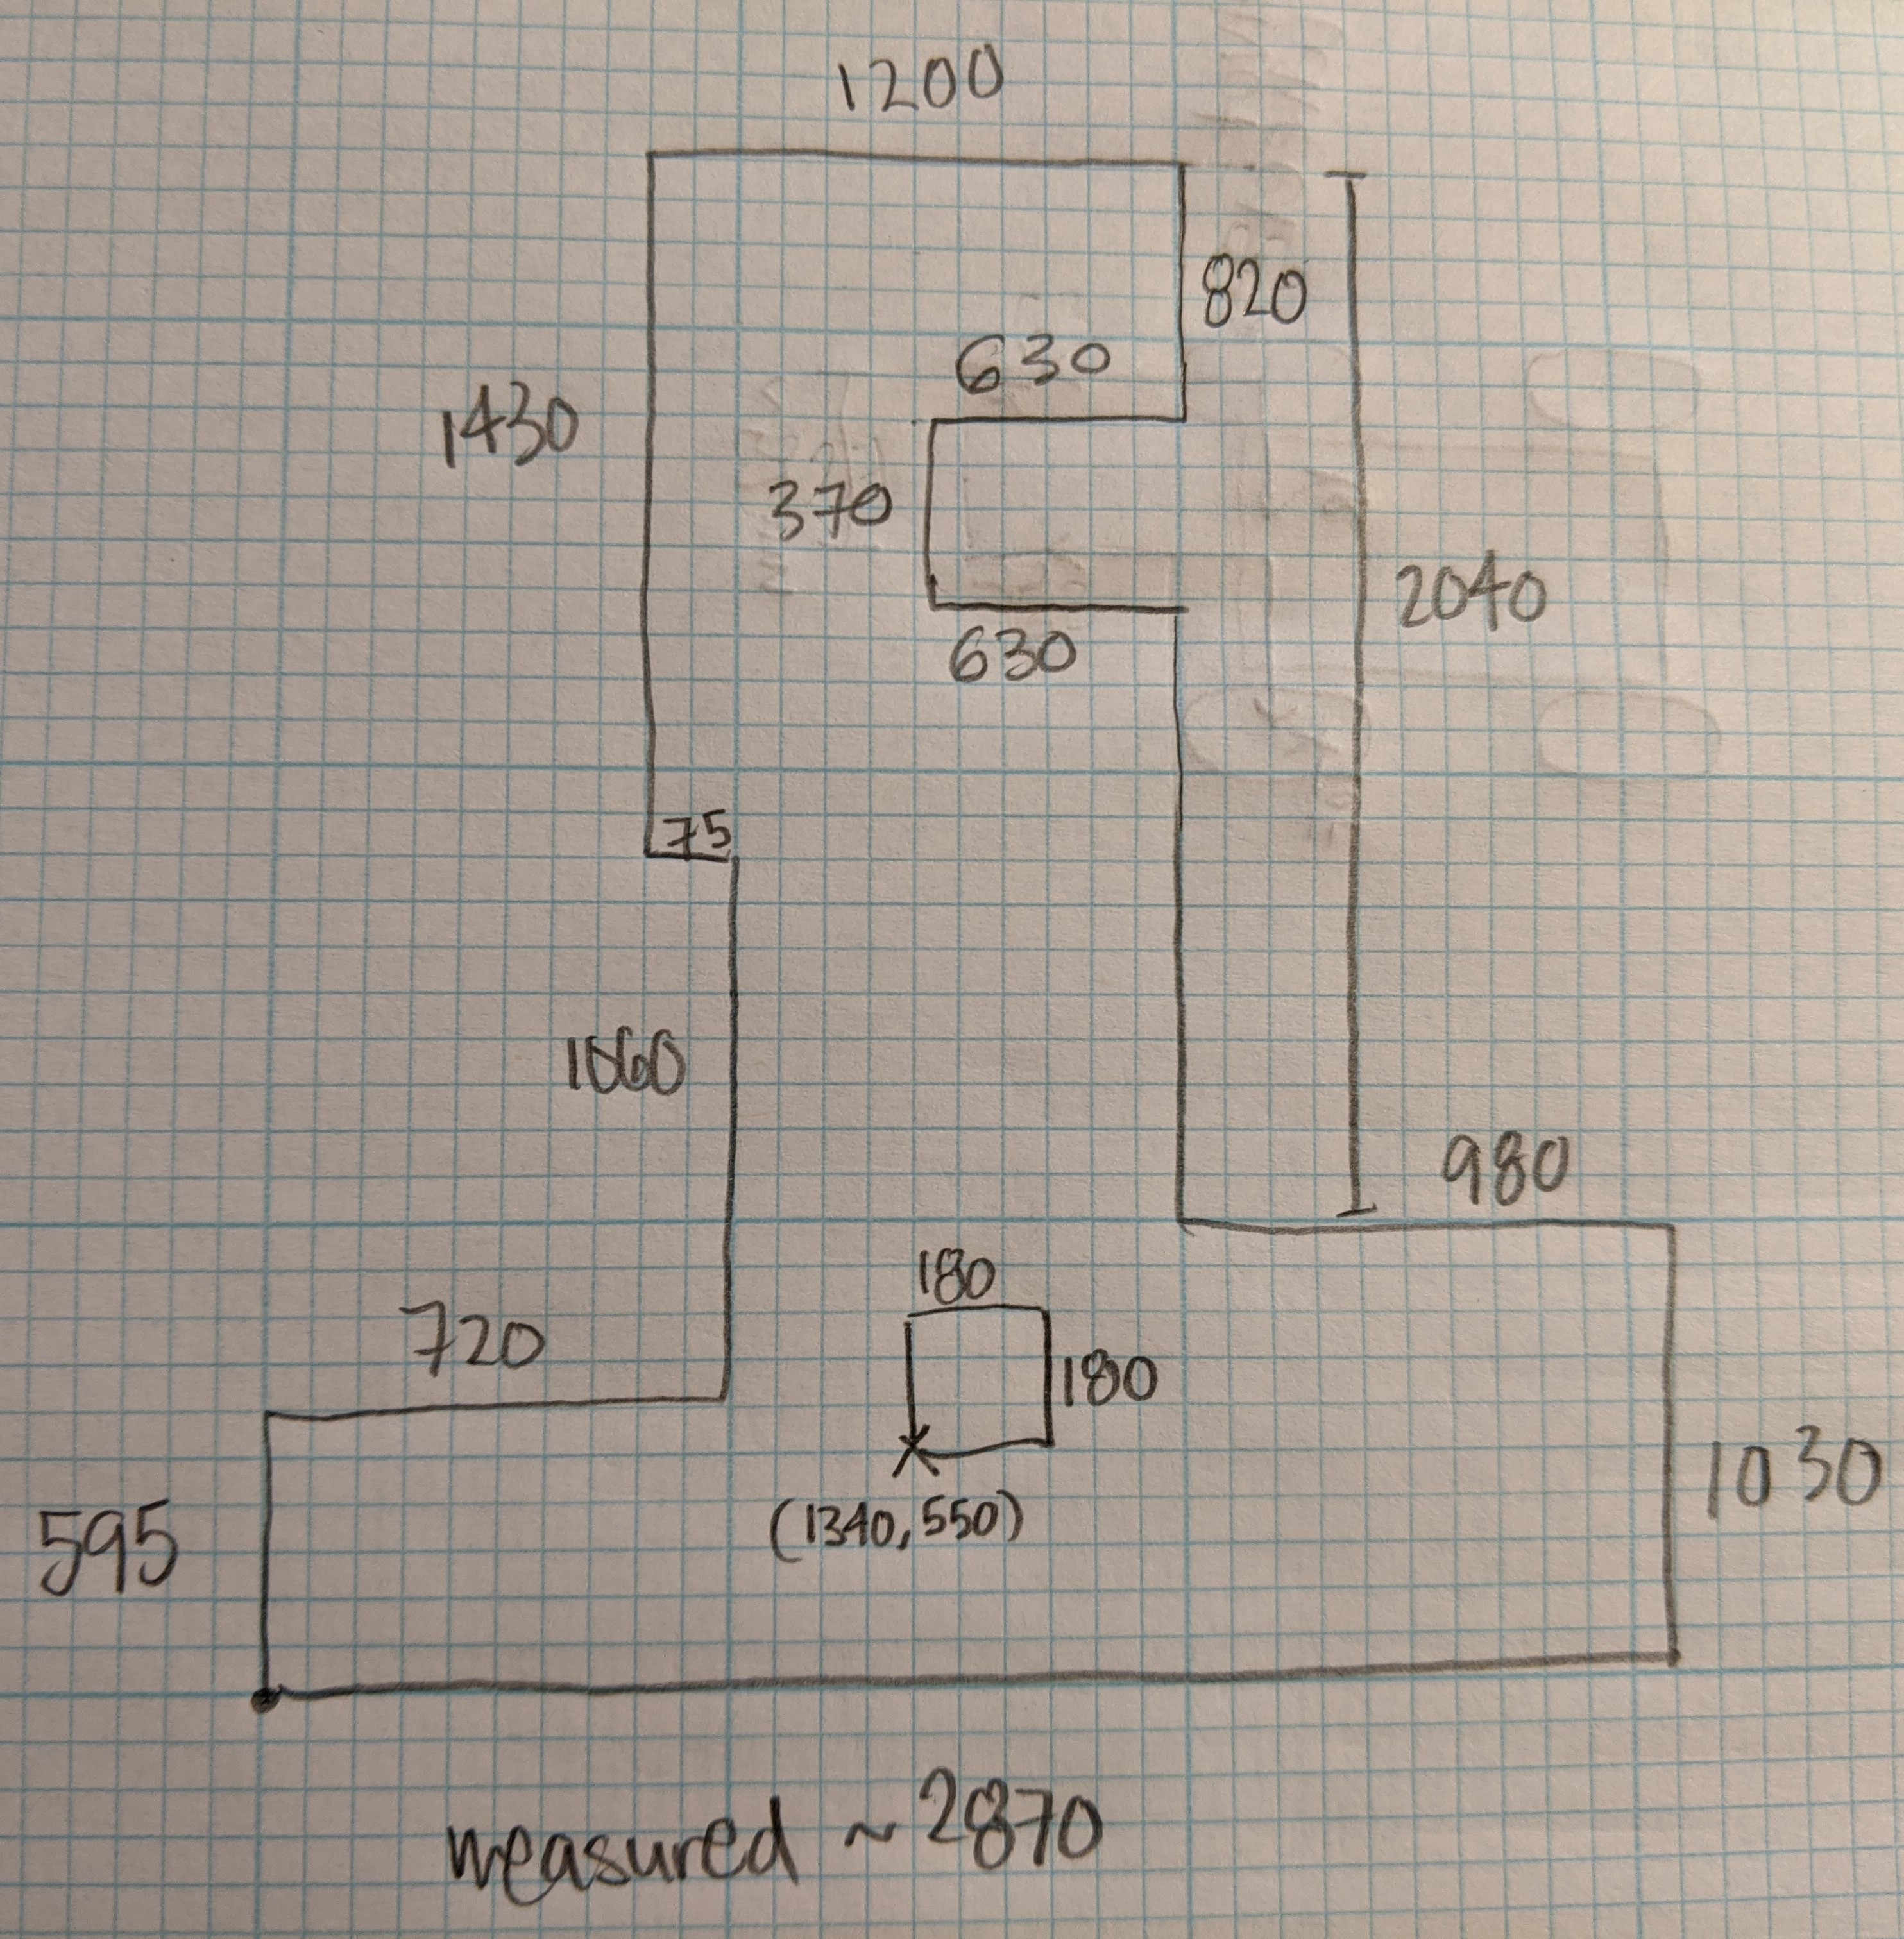 1200
820
630
1430
370
2040
630
75
1060
980
180
720
180
1030
595
(1340, 550)
measured ~ 2870